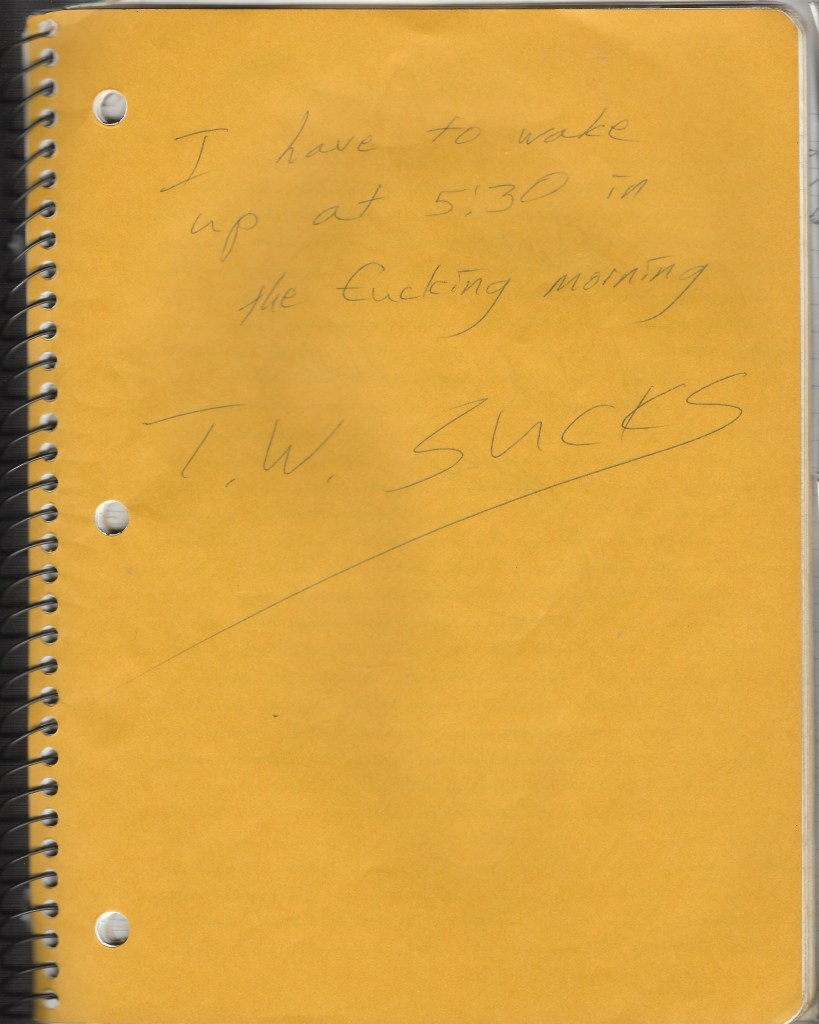 I have to wake
up at 5:30 in
the fucking morning
T.W. SUCKS